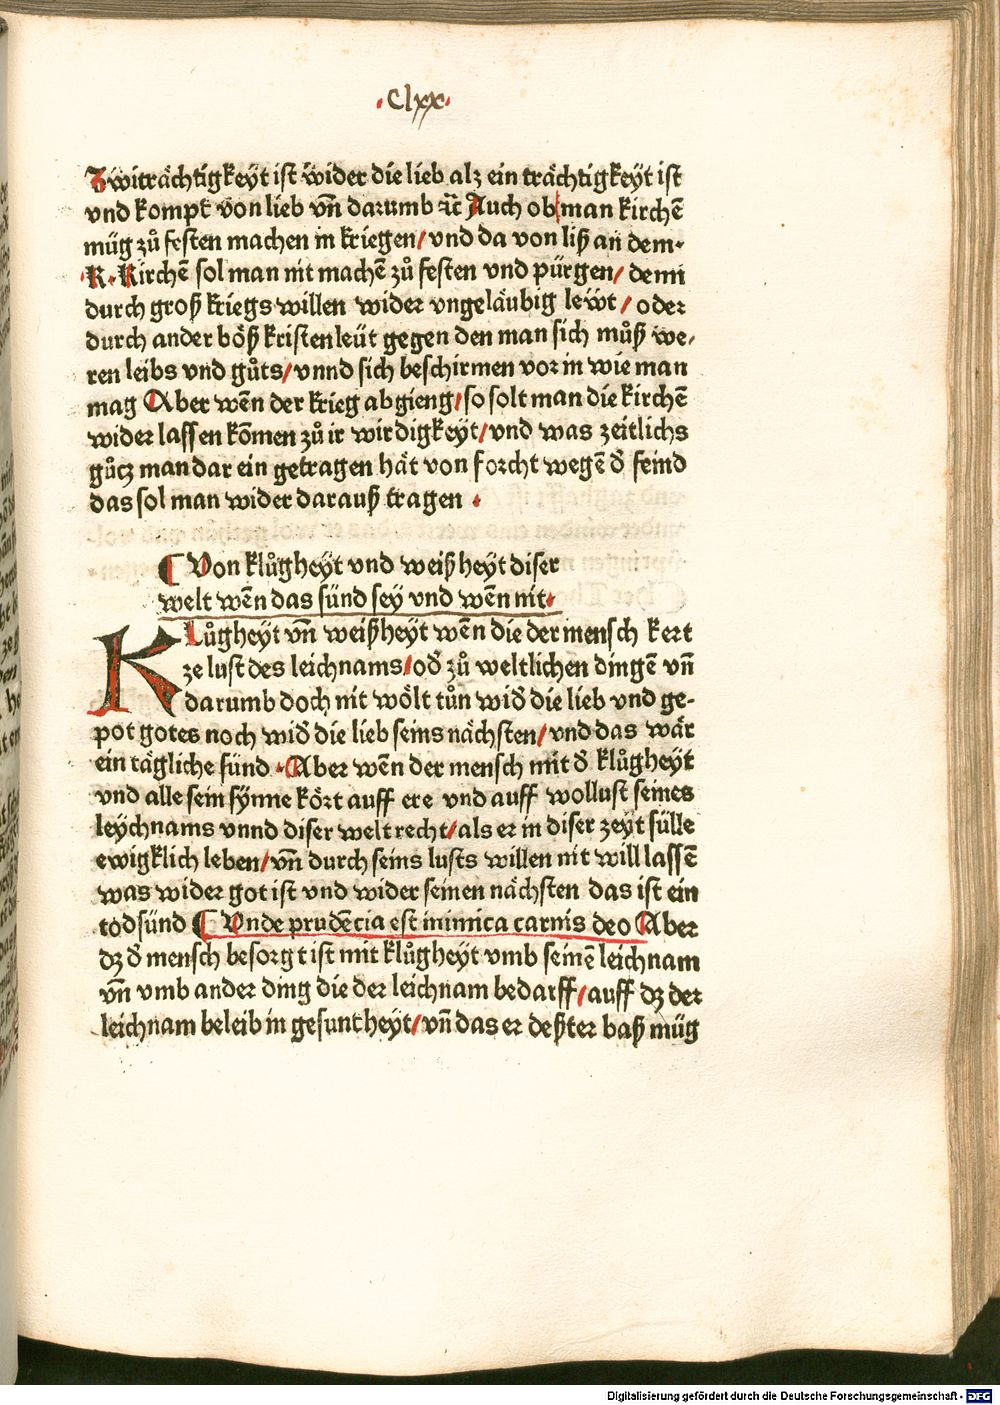 ·Clxx·
Zwiträchtigkeÿt ist wider die lieb alz ein trächtigkeÿt ist
vnd kompt von lieb vn̄ darumb ꝛc̄ Auch ob man kirchē
müg zů festen machen in kriegen/ vnd da von liß an dem·
·K· Kirchē sol man nit machē zů festen vnd pürgen/ denn
durch groß kriegs willen wider vngeläubig lewt/ oder
durch ander böß kristenleüt gegen den man sich můß we⸗
ren leibs vnd gůts/ vnnd sich beschirmen vor in wie man
mag Aber wēn der krieg abgieng/ so solt man die kirchē
wider lassen kōmen zů ir wirdigkeÿt/ vnd was zeitlichs
gůcz man dar ein getragen hät von forcht wegē d̄ feind
das sol man wider darauß tragen ·
¶ Von klůgheÿt vnd weißheÿt diser
welt wēn das sünd seÿ vnd wēn nit·
KLůgheÿt vn̄ weißheÿt wēn die der mensch kert
ze lust des leichnams/ od̄ zů weltlichen dingē vn̄
darumb doch nit wölt tůn wid̄ die lieb vnd ge⸗
pot gotes noch wid̄ die lieb seins nächsten/ vnd das wär
ein tägliche sünd · Aber wēn der mensch mit d̄ klůgheÿt
vnd alle sein sÿnne kört auff ere vnd auff wollust seines
leÿchnams vnnd diser welt recht/ als er in diser zeÿt sülle
ewigklich leben/ vn̄ durch seins lusts willen nit will lassē
was wider got ist vnd wider seinen nächsten das ist ein
todsünd ¶ Vnde prudēcia est inimica carnis deo Aber
dz d̄ mensch besorgt ist mit klůgheÿt vmb seinē leichnam
vn̄ vmb ander ding die der leichnam bedarff/ auff dz der
leichnam beleib in gesuntheÿt/ vn̄ das er deßter baß müg
Digitalisierung gefördert durch die Deutsche Forschungsgemeinschaft - DFG